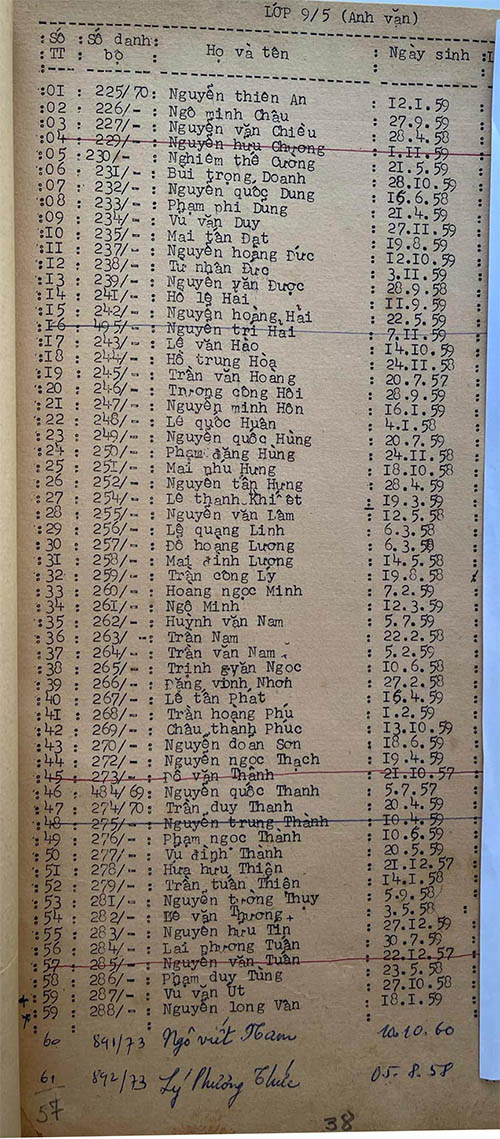 LỚP 9/5 (Anh văn)
Số TT : Số danh bộ : Họ và tên : Ngày sinh :
:01 : 225/70: Nguyễn thiên An : 12.1.59
:02 : 226/- : Ngô minh Châu : 27.9.59
:03 : 227/- : Nguyễn văn Chiểu : 28.4.58
:04 : 229/- : Nguyễn hưu Chương : 1.11.59
:05 : 230/- : Nghiêm thế Cương : 21.5.59
:06 : 231/- : Bùi trọng Doanh : 28.10.59
:07 : 232/- : Nguyễn quốc Dung : 16.6.58
:08 : 233/- : Phạm phi Dũng : 21.4.59
:09 : 234/- : Vu văn Duy : 27.11.59
:10 : 235/- : Mai tân Đạt : 19.8.59
:11 : 237/- : Nguyễn hoàng Đức : 12.10.59
:12 : 238/- : Từ nhân Đức : 3.11.59
:13 : 239/- : Nguyễn văn Được : 28.9.58
:14 : 241/- : Hồ lệ Hải : 11.9.59
:15 : 242/- : Nguyễn hoàng Hải : 22.5.59
:16 : 495/- : Nguyễn trí Hai : 7.11.59
:17 : 243/- : Lê văn Hào : 14.10.59
:18 : 244/- : Hồ trung Hòa : 24.11.58
:19 : 245/- : Trần văn Hoang : 20.7.57
:20 : 246/- : Trương công Hồi : 28.9.59
:21 : 247/- : Nguyễn minh Hôn : 16.1.59
:22 : 248/- : Lê quốc Huân : 4.1.58
:23 : 249/- : Nguyễn quốc Hùng : 20.7.59
:24 : 250/- : Phạm đăng Hùng : 24.11.58
:25 : 251/- : Mai phu Hưng : 18.10.58
:26 : 252/- : Nguyễn tấn Hưng : 28.4.59
:27 : 254/- : Lê thanh Khiết : 19.3.59
:28 : 255/- : Nguyễn văn Lâm : 12.5.58
:29 : 256/- : Lê quang Linh : 6.3.58
:30 : 257/- : Đỗ hoang Lương : 6.3.59
:31 : 258/- : Mai đình Lượng : 14.5.58
:32 : 259/- : Trần công Lý : 19.8.58
:33 : 260/- : Hoang ngọc Minh : 7.2.59
:34 : 261/- : Ngô Minh : 12.3.59
:35 : 262/- : Huỳnh văn Nam : 5.7.59
:36 : 263/ -: Trần Nam : 22.2.58
:37 : 264/- : Trần văn Nam : 5.2.59
:38 : 265/- : Trịnh văn Ngọc : 10.6.58
:39 : 266/- : Đặng vĩnh Nhơn : 27.2.58
:40 : 267/- : Lê tấn Phát : 16.4.59
:41 : 268/- : Trần hoàng Phú : 1.2.59
:42 : 269/- : Châu thanh Phúc : 13.10.59
:43 : 270/- : Nguyễn doan Sơn : 18.6.59
:44 : 272/- : Nguyễn ngọc Thạch : 19.4.59
:45 : 273/- : Đỗ văn Thành : 21.10.57
:46 : 484/69: Nguyễn quốc Thanh : 5.7.57
:47 : 274/70: Trần duy Thanh : 20.4.59
:48 : 275/- : Nguyễn trung Thành : 10.4.59
:49 : 276/- : Phạm ngọc Thành : 10.6.59
:50 : 277/- : Vu đình Thành : 20.5.59
:51 : 278/- : Hứa hưu Thiện : 21.12.57
:52 : 279/- : Trần tuấn Thiện : 14.1.58
:53 : 281/- : Nguyễn trọng Thụy : 5.9.58
:54 : 282/- : Lê văn Thương : 3.5.58
:55 : 283/- : Nguyễn hưu Tín : 27.12.59
:56 : 284/- : Lai phương Tuấn : 30.7.59
:57 : 285/- : Nguyễn văn Tuấn : 22.12.57
:58 : 286/- : Phạm duy Tùng : 23.5.58
:59 : 287/- : Vu văn Út : 27.10.58
:59 : 288/- : Nguyễn long Vân : 18.1.59
60 891/73 Ngô viết Nam 10.10.60
61 892/73 Lý Phương Thức 05.8.58
57
38